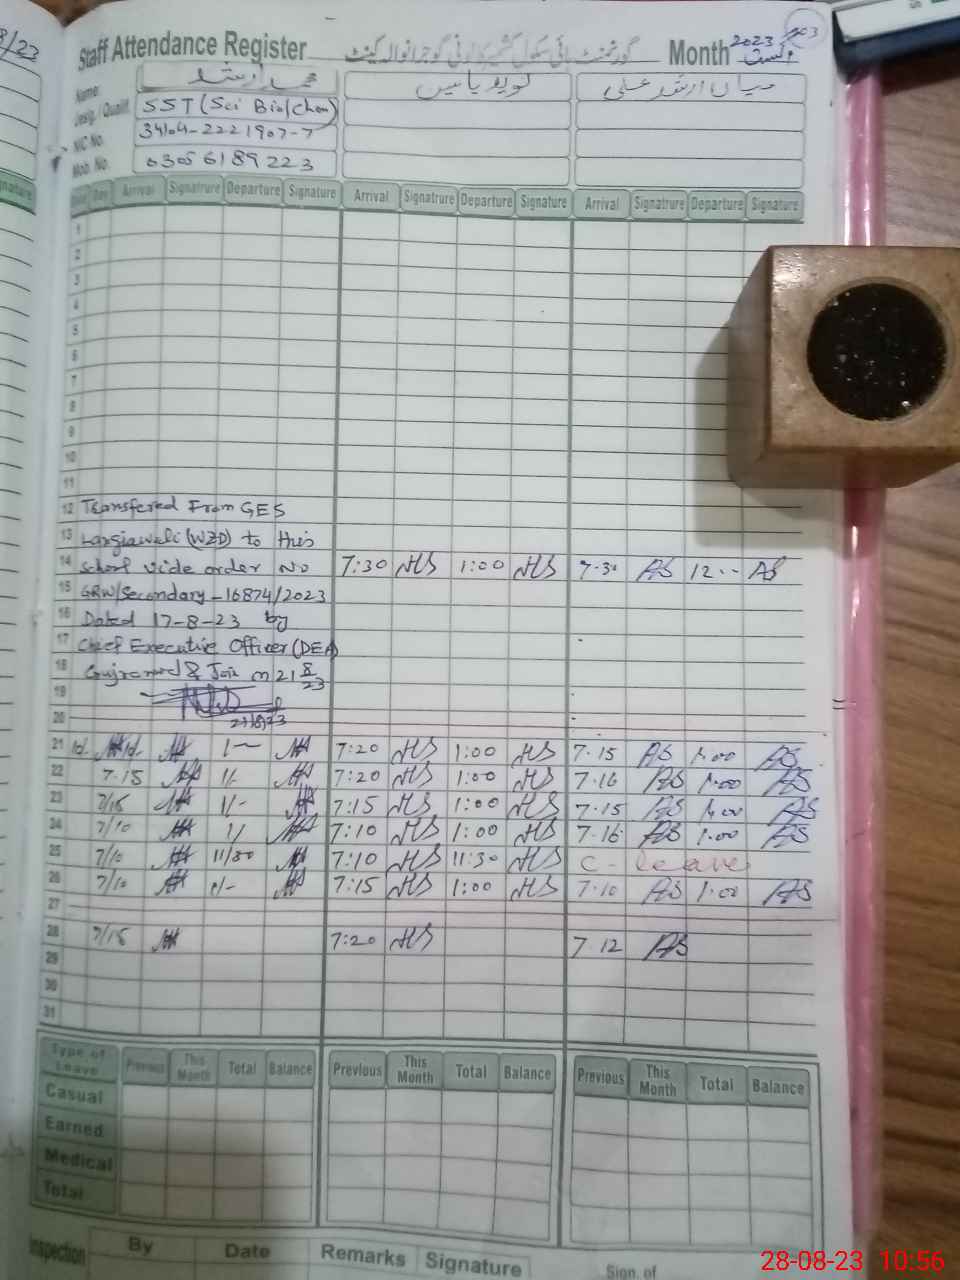 8/23
Staff Attendance Register گورنمنٹ ہائی سکول کشمیر کالونی گوجرانوالہ کینٹ Month اگست 2023
Name: محمد ارشد نوید یاسین میاں ارشد علی
Desig. / Qualif. SST (Sci Bio/Chem)
NIC No. 34104-2221907-7
Mob. No. 03056189223
Date Day Arrival Signatrure Departure Signature Arrival Signatrure Departure Signature Arrival Signatrure Departure Signature
1
2
3
4
5
6
7
8
9
10
11
12 Transfered From GES
13 Largiawali (WZD) to this
14 School vide order No 7:30 NS 1:00 NS 7·30 AS 12·· AS
15 GRW/Secondary-16874/2023
16 Dated 17-8-23 by
17 Chief Executive Officer (DEA)
18 Gujranwala & Join on 21 8/23
19
20 21/8/23
21 1/- 7:20 NS 1:00 NS 7·15 AS 1·00 AS
22 7·15 1/- 7:20 NS 1:00 NS 7·16 AS 1·00 AS
23 7/15 1/- 7:15 NS 1:00 NS 7·15 AS 1·00 AS
24 7/10 1/ 7:10 NS 1:00 NS 7·16 AS 1·00 AS
25 7/10 11/30 7:10 NS 11:30 NS C-leave
26 7/10 1/- 7:15 NS 1:00 NS 7·10 AS 1·00 AS
27
28 7/15 7:20 NS 7·12 AS
29
30
31
Type of Leave Previous This Month Total Balance Previous This Month Total Balance Previous This Month Total Balance
Casual
Earned
Medical
Total
Inspection By Date Remarks Signature Sign. of
28-08-23 10:56